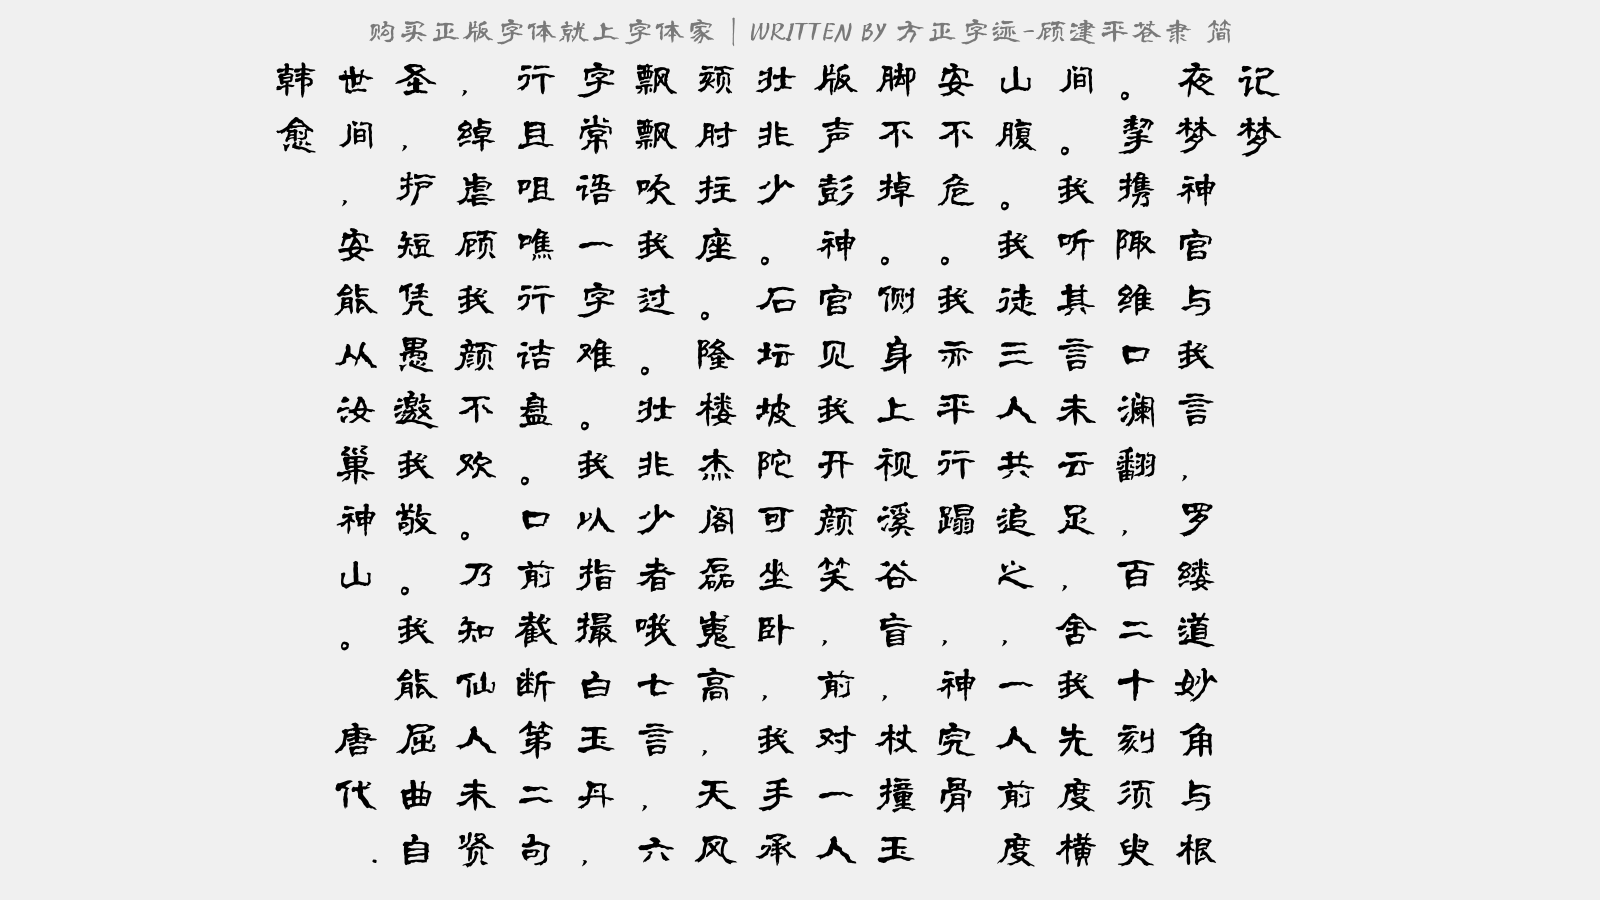 购买正版字体就上字体家 | WRITTEN BY 方正字迹-顾建平苍隶 简
记梦
夜梦神官与我言，罗缕道妙角与根
。挈携陬维口澜翻，百二十刻须臾
间。我听其言未云足，舍我先度横
山腹。我徒三人共追之，一人前度
安不危。我亦平行蹋 ，神完骨
脚不掉。侧身上视溪谷盲，杖撞玉
版声彭。神官见我开颜笑，前对一人
壮非少。石坛坡陀可坐卧，我手承
颏肘拄座。隆楼杰阁磊嵬高，天风
飘飘吹我过。壮非少者哦七言，六
字常语一字难。我以指撮白玉丹，
行且咀噍行诘盘。口前截断第二句
，绰虐顾我颜不欢。乃知仙人未贤
圣，护短凭愚邀我敬。我能屈曲自
世间，安能从汝巢神山。 唐代.
韩愈